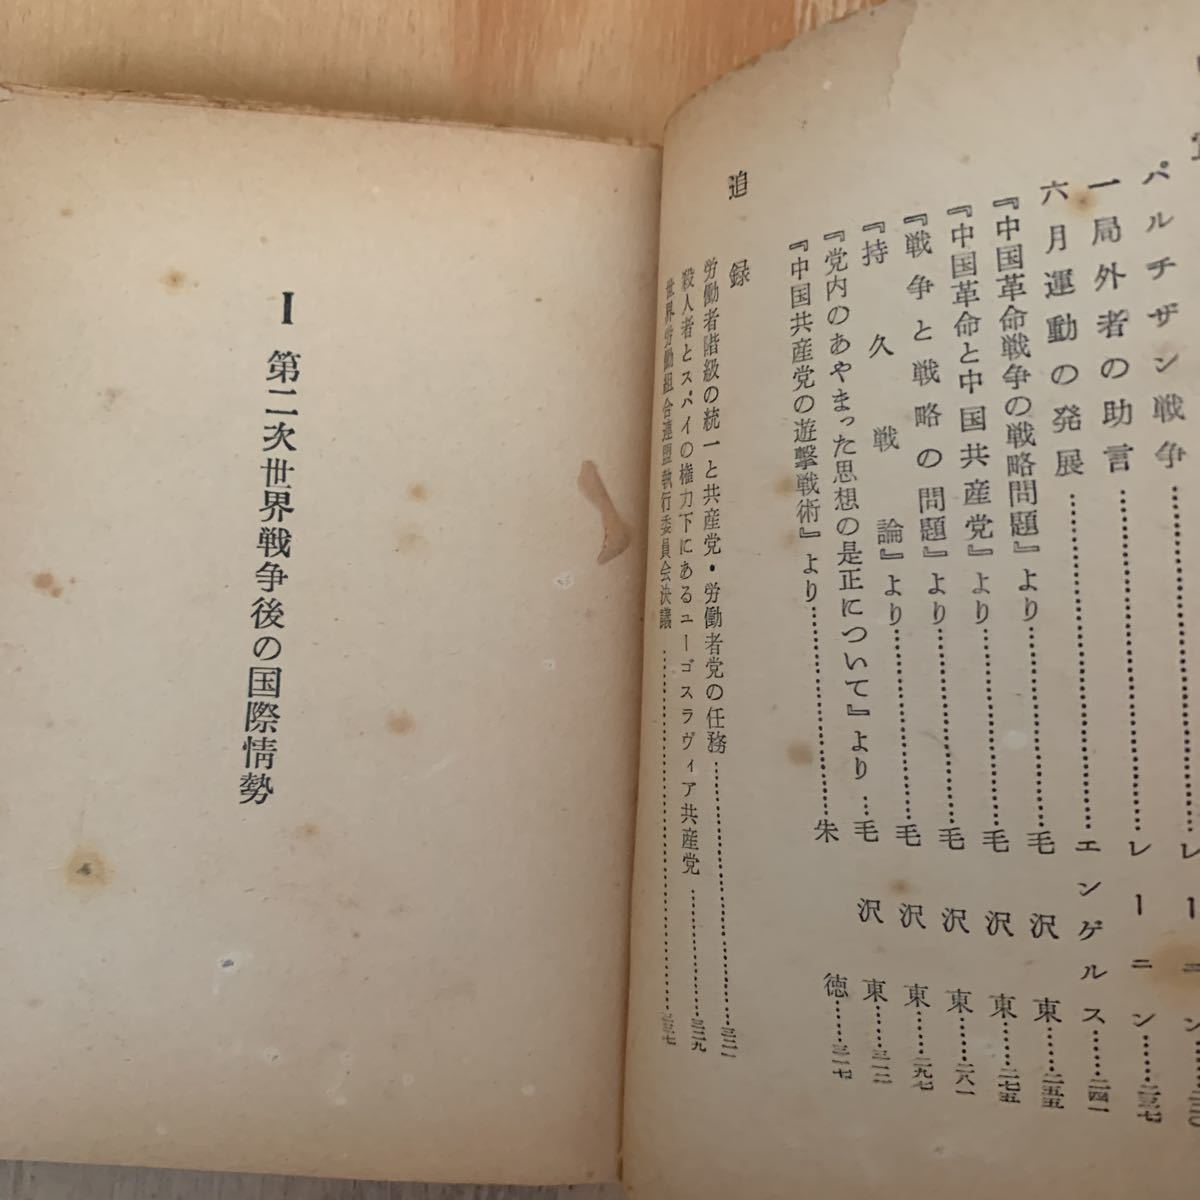 パルチザン戦争……レーニン……二三〇
一局外者の助言……レーニン……二三七
六月運動の発展……エンゲルス……二四一
『中国革命戦争の戦略問題』より……毛沢東……二五五
『中国革命と中国共産党』より……毛沢東……二七五
『戦争と戦略の問題』より……毛沢東……二八一
『持久戦論』より……毛沢東……二九七
『党内のあやまった思想の是正について』より…毛沢東……三一二
『中国共産党の遊撃戦術』より……朱徳……三一七
追録
労働者階級の統一と共産党・労働者党の任務……三二一
殺人者とスパイの権力下にあるユーゴスラヴィア共産党……三二九
世界労働組合連盟執行委員会決議……三三七
I 第二次世界戦争後の国際情勢